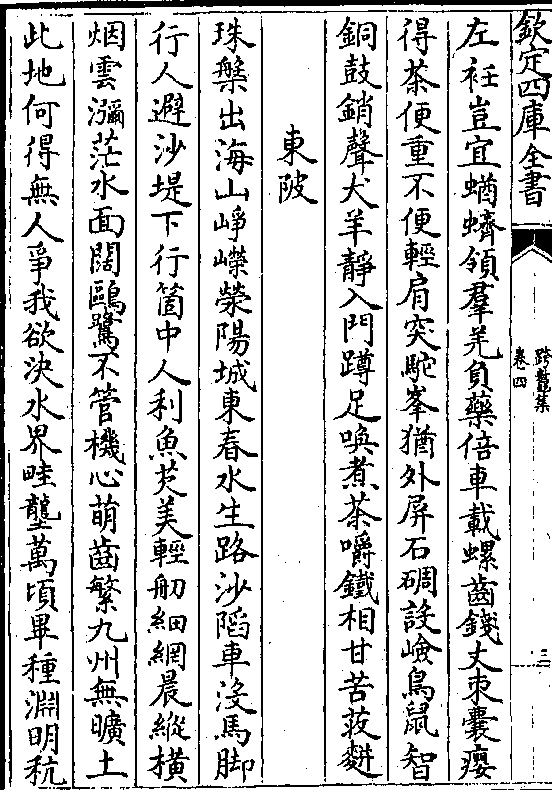 欽定四庫全書
跨鼇集
卷四
三
左衽豈宜蝤蠐領羣羌負藥倍車載螺齒錢大朿囊癭
得茶便重不便輕肩突駝峯猶外屏石碉設嶮鳥鼠智
銅鼓銷聲犬羊靜入門蹲足喚煮茶嚼鐵相甘苦荍麪
東陂
珠槃出海山崢嶸滎陽城東春水生路沙陷車沒馬脚
行人避沙堤下行箇中人利魚芡美輕舠細網晨縱橫
烟雲瀰茫水面闊鷗鷺不管機心萌齒繁九州無曠土
此地何得無人爭我欲決水界畦壟萬頃畢種淵明秔